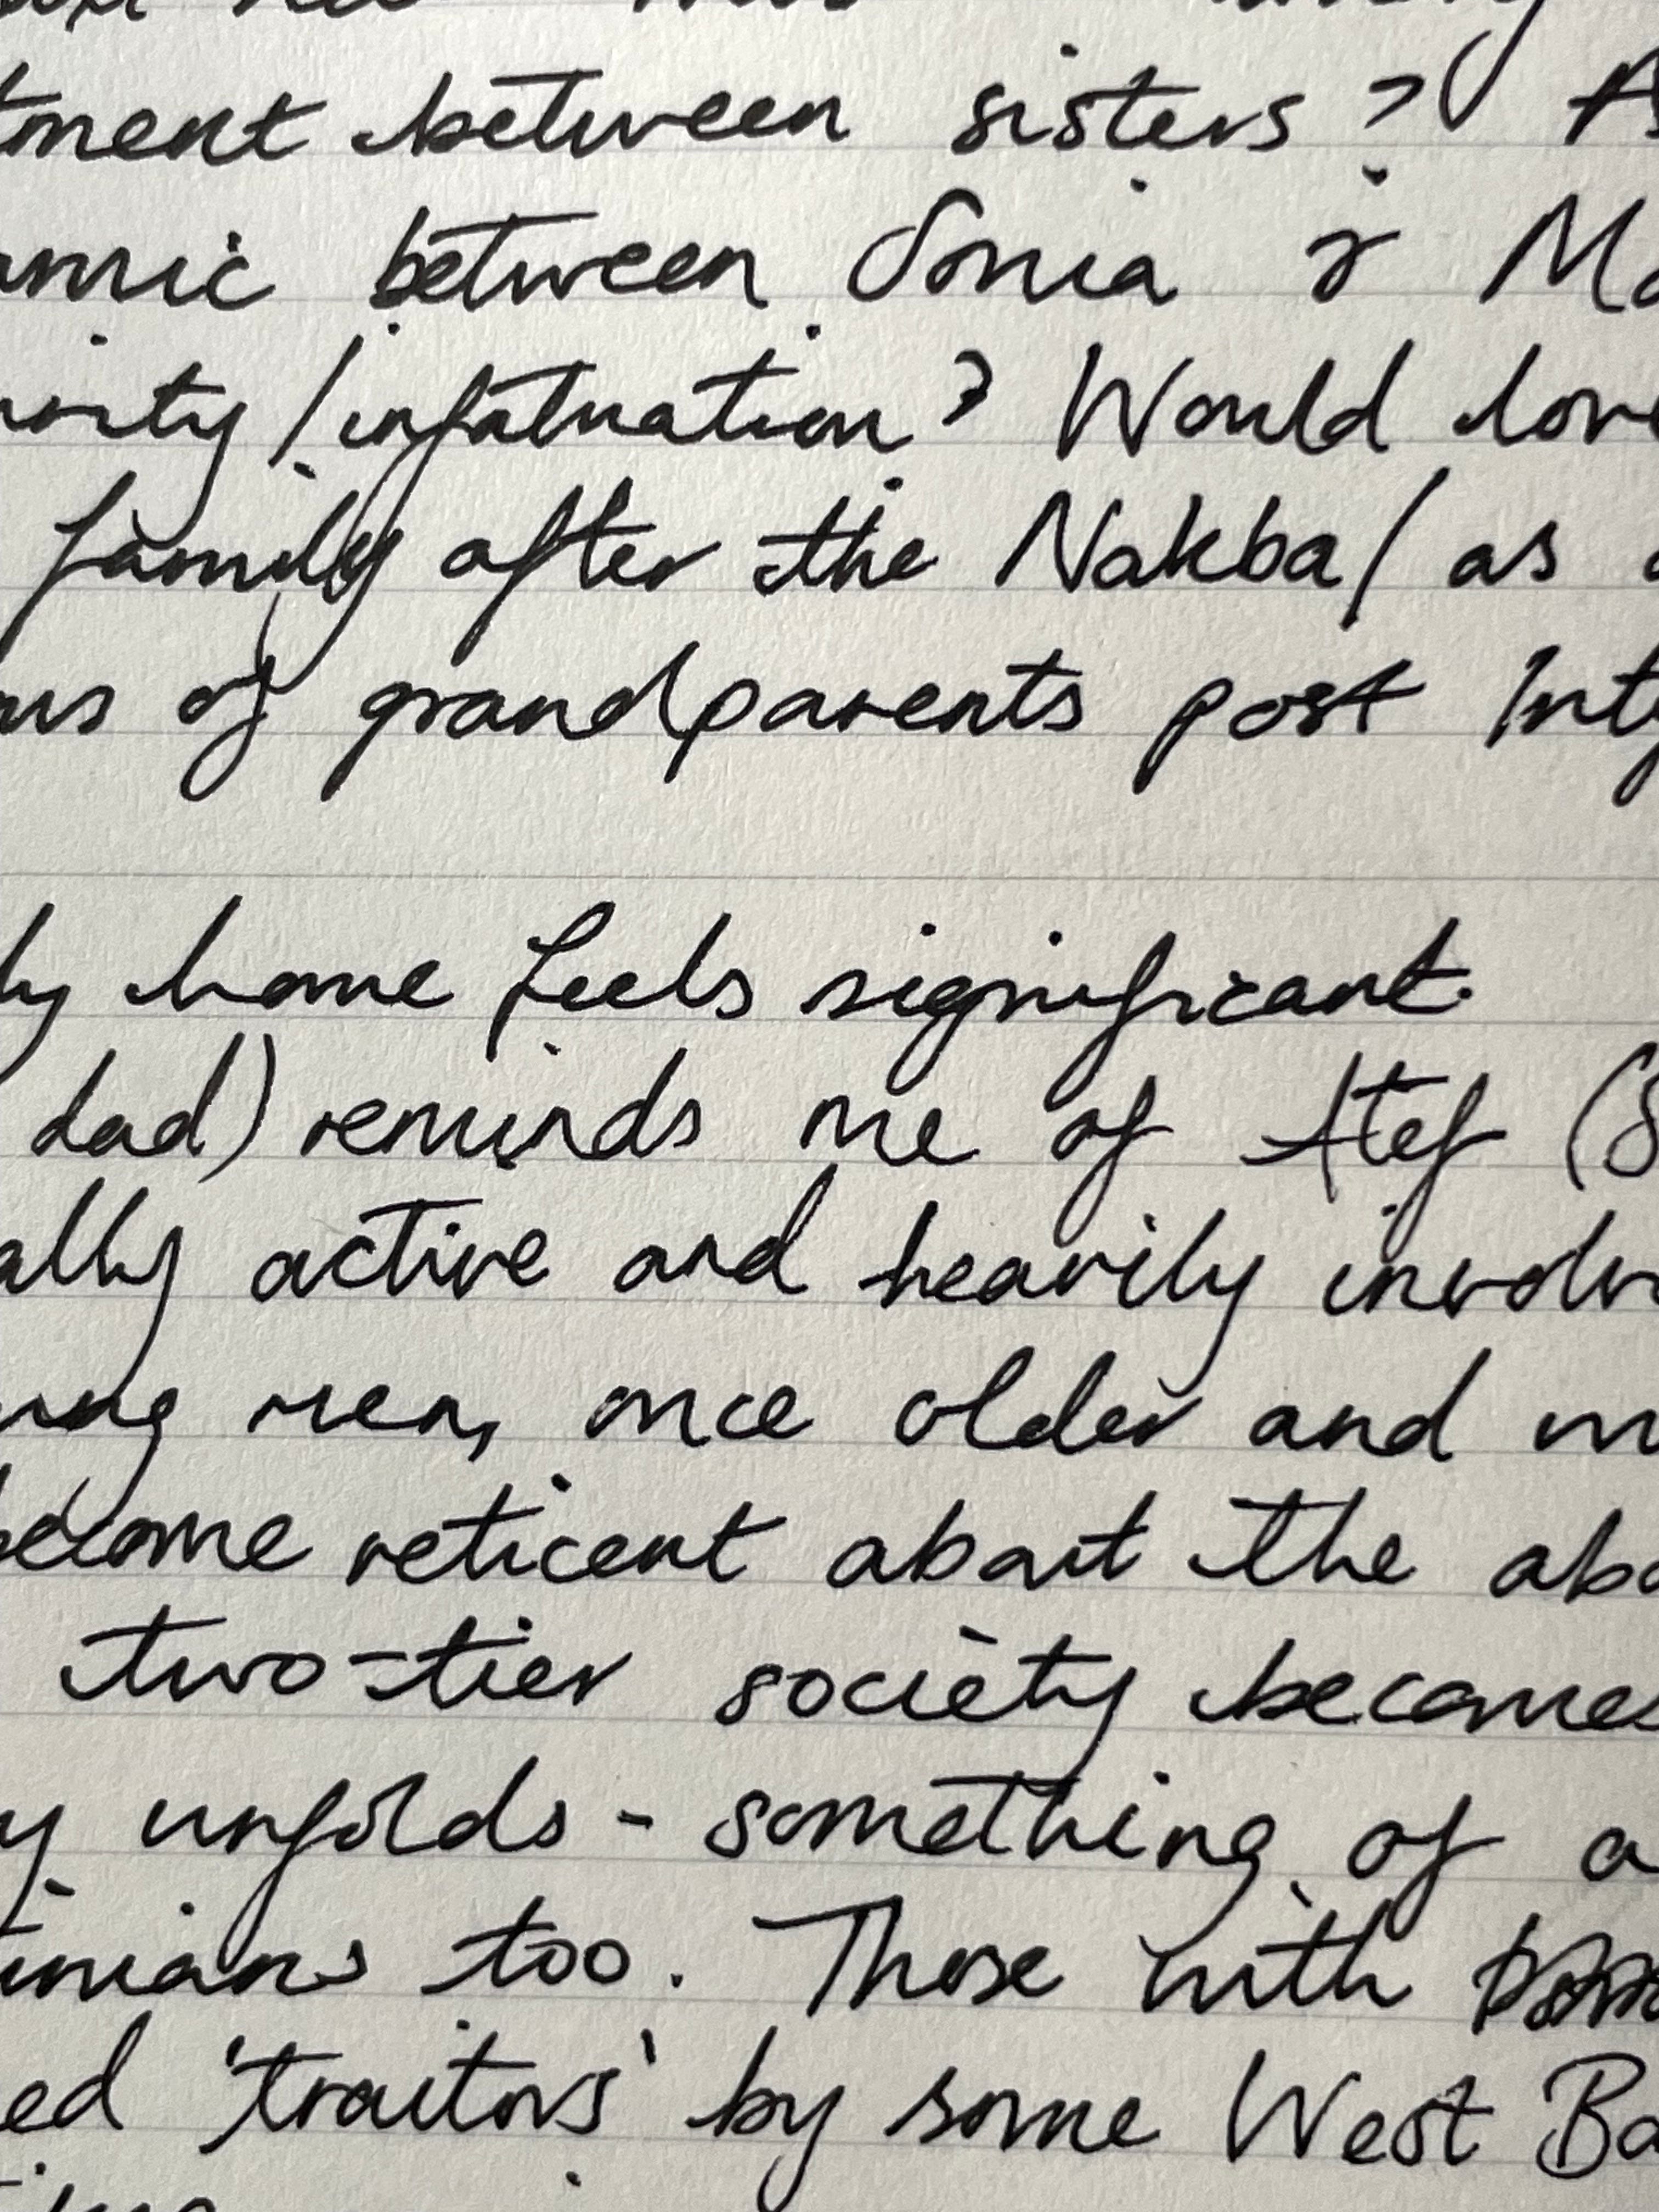 tment between sisters? A
amic between Sonia & Ma
iosity / infatuation? Would love
family after the Nakba / as a
ns of grandparents post Intif
ly home feels significant.
dad) reminds me of Atef (S
ally active and heavily involv
ung men, once older and m
become reticent about the abo
two-tier society becomes
y unfolds - something of a
tinians too. Those with
ed 'traitors' by some West Ba